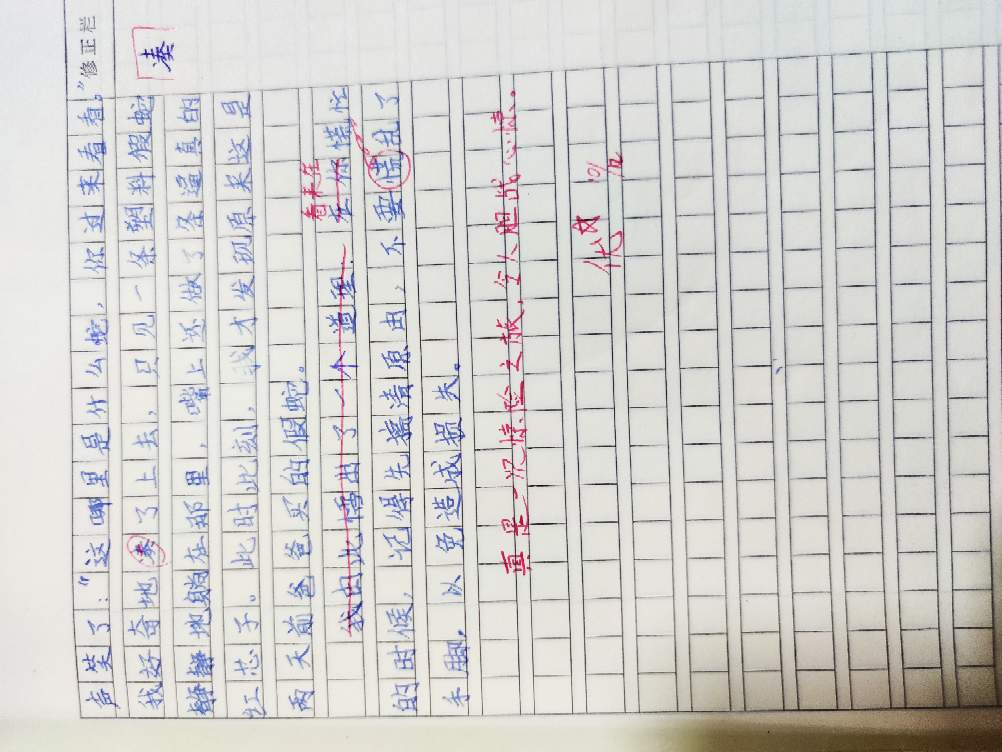 修正栏
凑
声笑了：“这哪里是什么蛇，你过来看看。”
我好奇地凑了上去，只见一条塑料假蛇
静静地躺在那里，嘴上还做了条逼真的
红芯子。此时此刻，我才发现原来这是
两天前爸爸买的假蛇。
看来在
我由此悟出了一个道理：在你慌忙
的时候，记得先搞清原由，不要慌乱了
手脚，以免造成损失。
真是一次惊险之旅，令人胆战心惊。
优
10/12